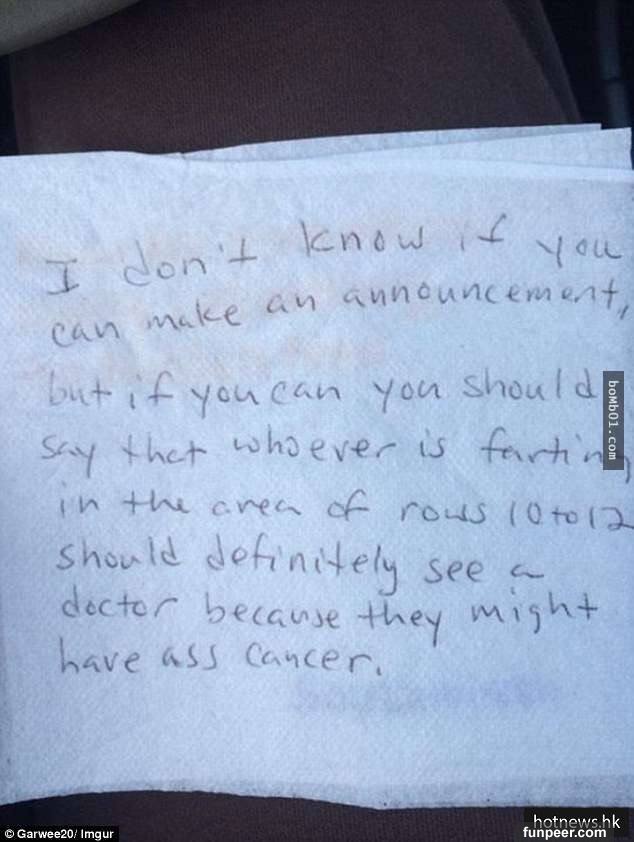 I don't know if you
can make an announcement,
but if you can you should
say that whoever is farting
in the area of rows 10 to 12
should definitely see a
doctor because they might
have ass cancer.
boMb01.com
© Garwee20/ Imgur
hotnews.hk
funpeer.com